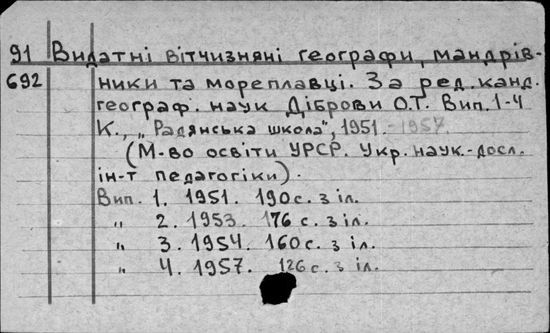 91 Видатні вітчизняні географи, мандрів-
692 ники та мореплавці. За ред. канд.
географ. наук Діброви О.Т. Вип. 1-4
К., „Радянська школа", 1951-1957.
(М-во освіти УРСР. Укр. наук.-досл.
ін-т педагогіки).
Вип. 1. 1951. 190 с. з іл.
„ 2. 1953. 176 с. з іл.
„ 3. 1954. 160 с. з іл.
„ 4. 1957. 126 с. з іл.